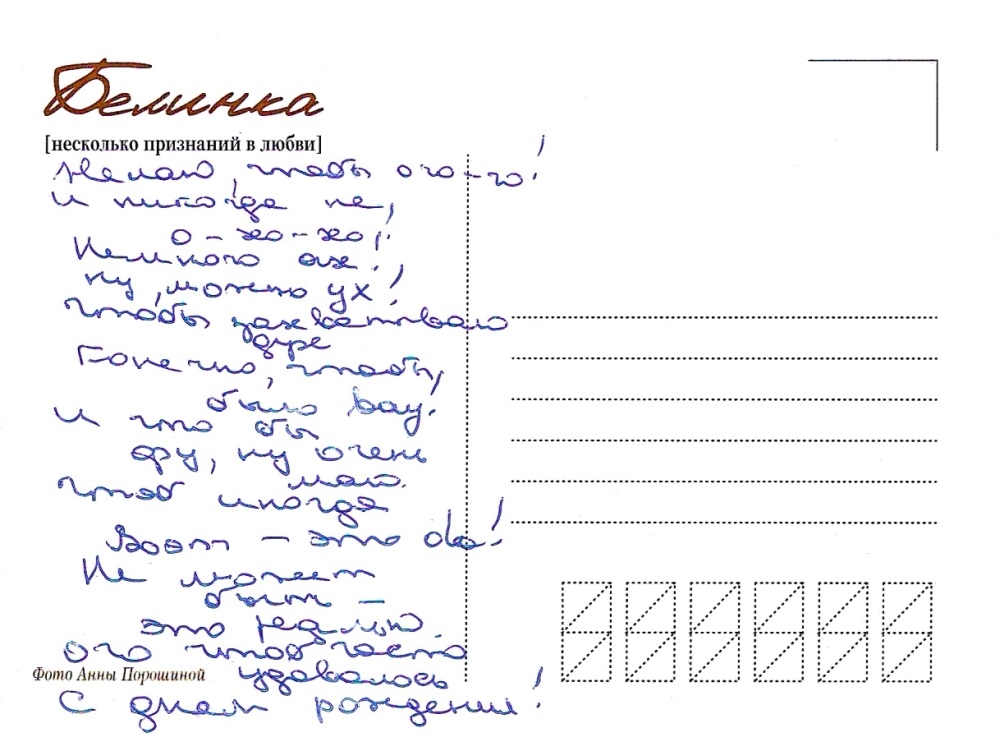 Белинка
[несколько признаний в любви]
Желаю, чтобы ого-го!
и никогда не,
о-хо-хо!
Немного ах!
ну, можно ух!
Чтобы захватывало
дух
Конечно, чтобы,
было вау!
И что бы
фу, ну очень
мало.
Чтоб иногда
Воэт - это да!
Не может
быть -
это реально.
ого чтоб часто
удавалось
Фото Анны Порошиной
С днем рождения!